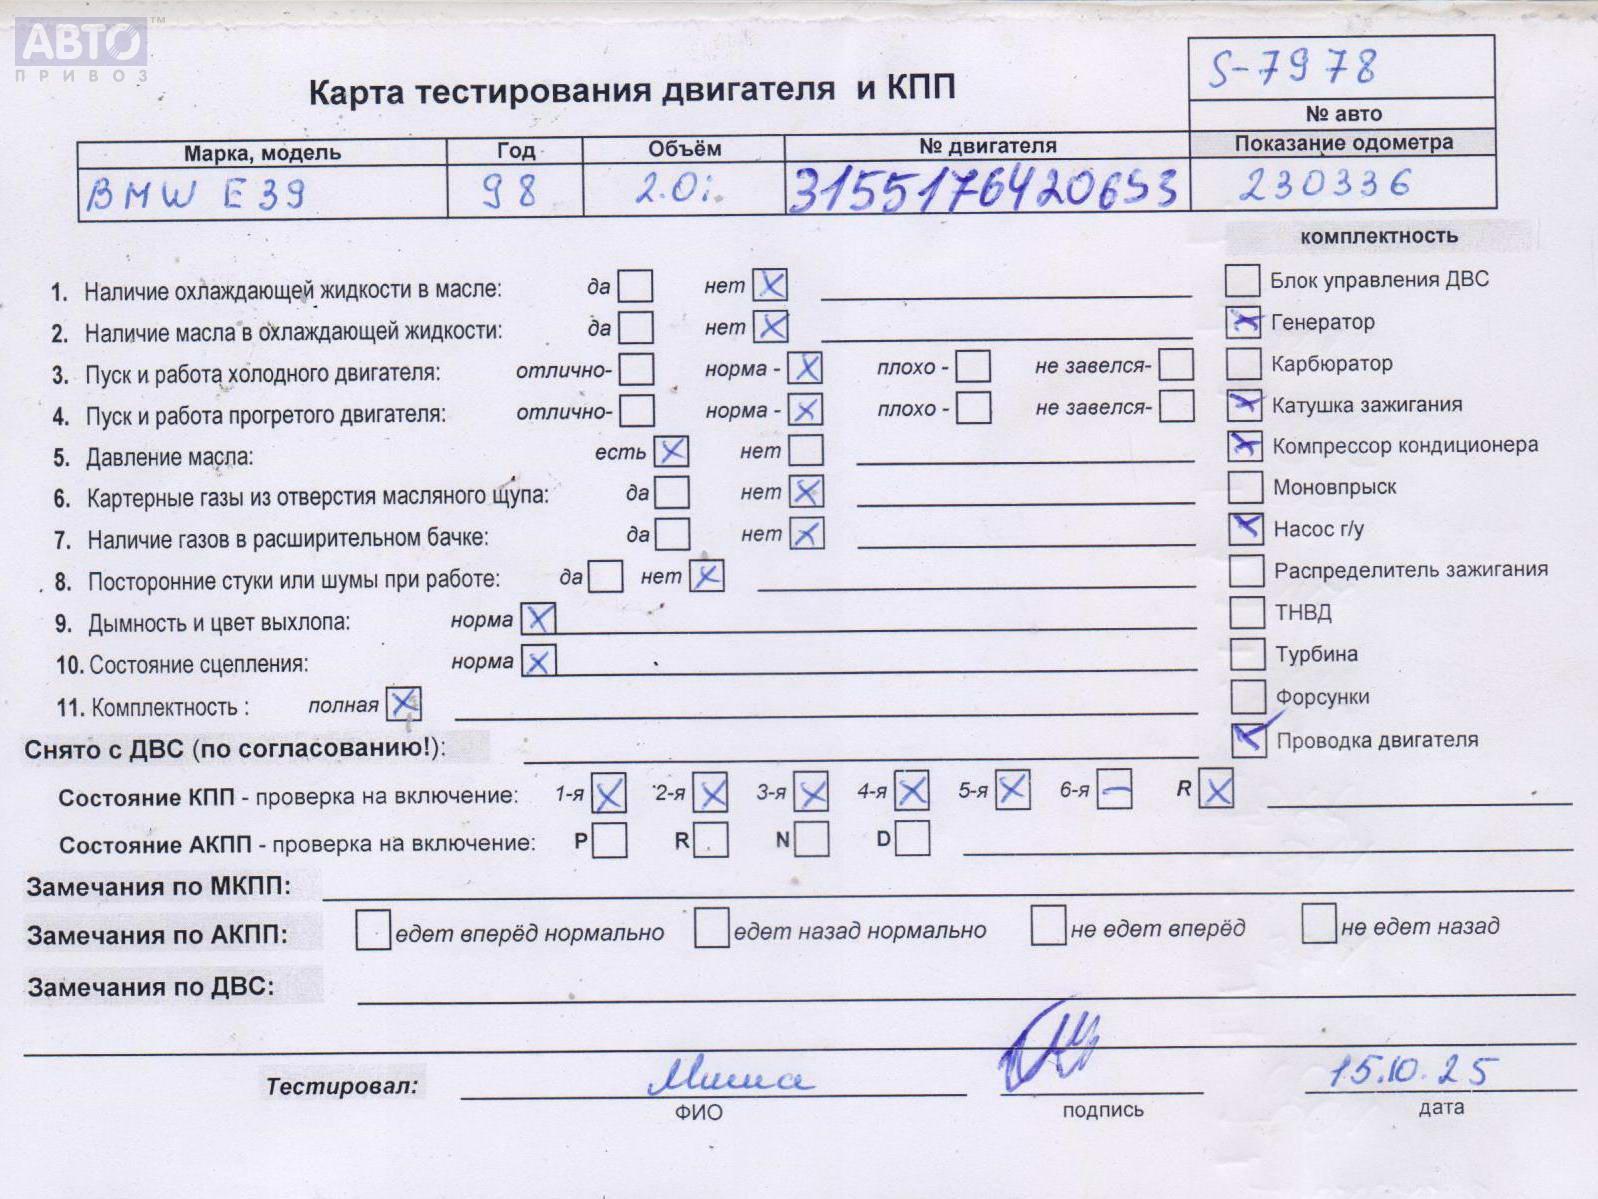 АВТО™
ПРИВОЗ
S-7978
Карта тестирования двигателя и КПП
№ авто
Марка, модель Год Объём № двигателя Показание одометра
BMW E39 98 2.0i 3155176420653 230336
комплектность
1. Наличие охлаждающей жидкости в масле: да нет X
Блок управления ДВС
2. Наличие масла в охлаждающей жидкости: да нет X
X Генератор
3. Пуск и работа холодного двигателя: отлично- норма - X плохо - не завелся-
Карбюратор
4. Пуск и работа прогретого двигателя: отлично- норма - X плохо - не завелся-
X Катушка зажигания
5. Давление масла: есть X нет
X Компрессор кондиционера
6. Картерные газы из отверстия масляного щупа: да нет X
Моновпрыск
7. Наличие газов в расширительном бачке: да нет X
X Насос г/у
8. Посторонние стуки или шумы при работе: да нет X
Распределитель зажигания
9. Дымность и цвет выхлопа: норма X
ТНВД
10. Состояние сцепления: норма X
Турбина
11. Комплектность : полная X
Форсунки
Снято с ДВС (по согласованию!):
Проводка двигателя
Состояние КПП - проверка на включение: 1-я X 2-я X 3-я X 4-я X 5-я X 6-я – R X
Состояние АКПП - проверка на включение: P R N D
Замечания по МКПП:
Замечания по АКПП: едет вперёд нормально едет назад нормально не едет вперёд не едет назад
Замечания по ДВС:
Тестировал: Миша 15.10.25
ФИО подпись дата